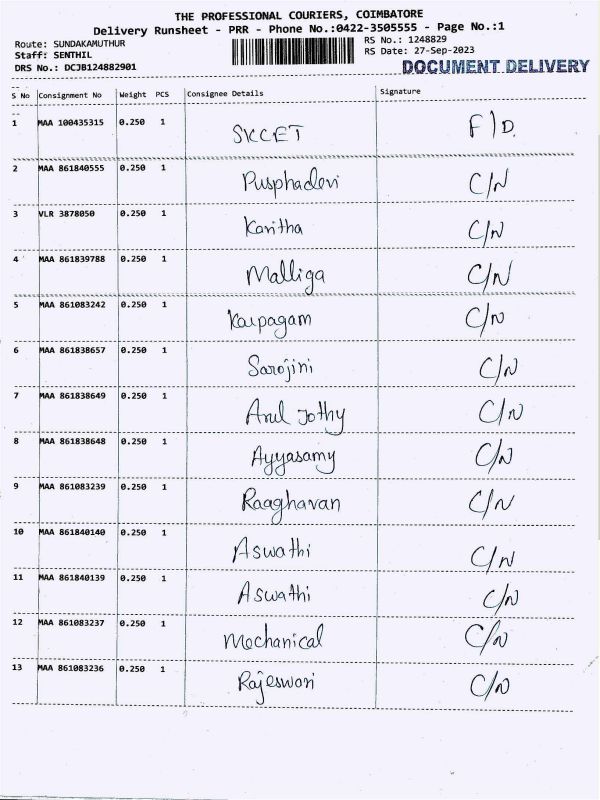 THE PROFESSIONAL COURIERS, COIMBATORE
Delivery Runsheet - PRR - Phone No.:0422-3505555 - Page No.:1
Route: SUNDAKAMUTHUR RS No.: 1248829
Staff: SENTHIL RS Date: 27-Sep-2023
DRS No.: DCJB124882901 DOCUMENT DELIVERY
S No Consignment No Weight PCS Consignee Details Signature
1 MAA 100435315 0.250 1 SKCET F/D.
2 MAA 861840555 0.250 1 Pusphadevi C/N
3 VLR 3878050 0.250 1 Kavitha C/N
4 MAA 861839788 0.250 1 Malliga C/N
5 MAA 861083242 0.250 1 Karpagam C/N
6 MAA 861838657 0.250 1 Sarojini C/N
7 MAA 861838649 0.250 1 Arul Jothy C/N
8 MAA 861838648 0.250 1 Ayyasamy C/N
9 MAA 861083239 0.250 1 Raaghavan C/N
10 MAA 861840140 0.250 1 Aswathi C/N
11 MAA 861840139 0.250 1 Aswathi C/N
12 MAA 861083237 0.250 1 Mechanical C/N
13 MAA 861083236 0.250 1 Rajeswari C/N